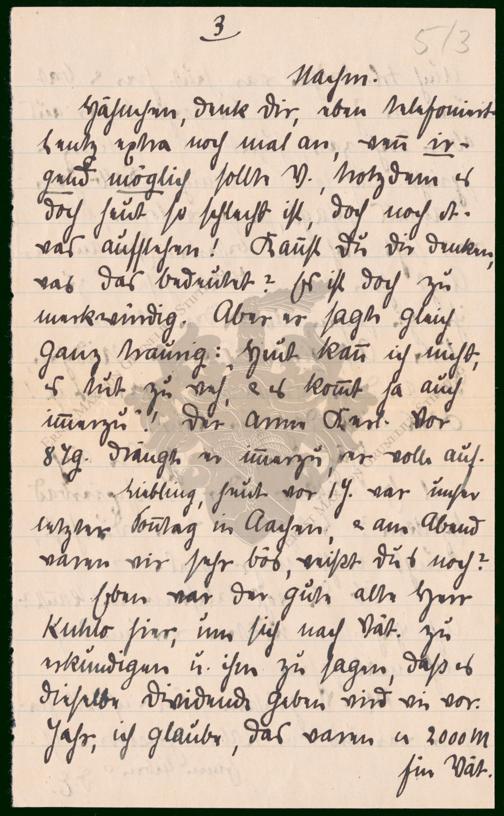 3
5/3
Nachm.
Hähnchen, denk dir, eben telefoniert
Lentz extra noch mal an, wen̄ ir-
gend möglich sollte V., trotzdem es
doch heut so schlecht ist, doch noch et-
was aufstehen! Kan̄st du dir denken,
was das bedeutet? Es ist doch zu
merkwürdig. Aber er sagte gleich
ganz traurig: heut kan̄ ich nicht,
es tut zu weh, & es kom̄t ja auch
im̄erzu"! Der arme Kerl. Vor
8 Tg. drängte er im̄erzu, er wolle auf.
Liebling, heut vor 1 J. war unser
letzter Son̄tag in Aachen, & am Abend
waren wir sehr bös, weißt du's noch?
Eben war der gute alte Herr
Kuhlo hier, um sich nach Vät. zu
erkundigen u. ihm zu sagen, daß es
dieselbe Dividende geben wird wie vor.
Jahr, ich glaube, das waren 2000 M
für Vät.